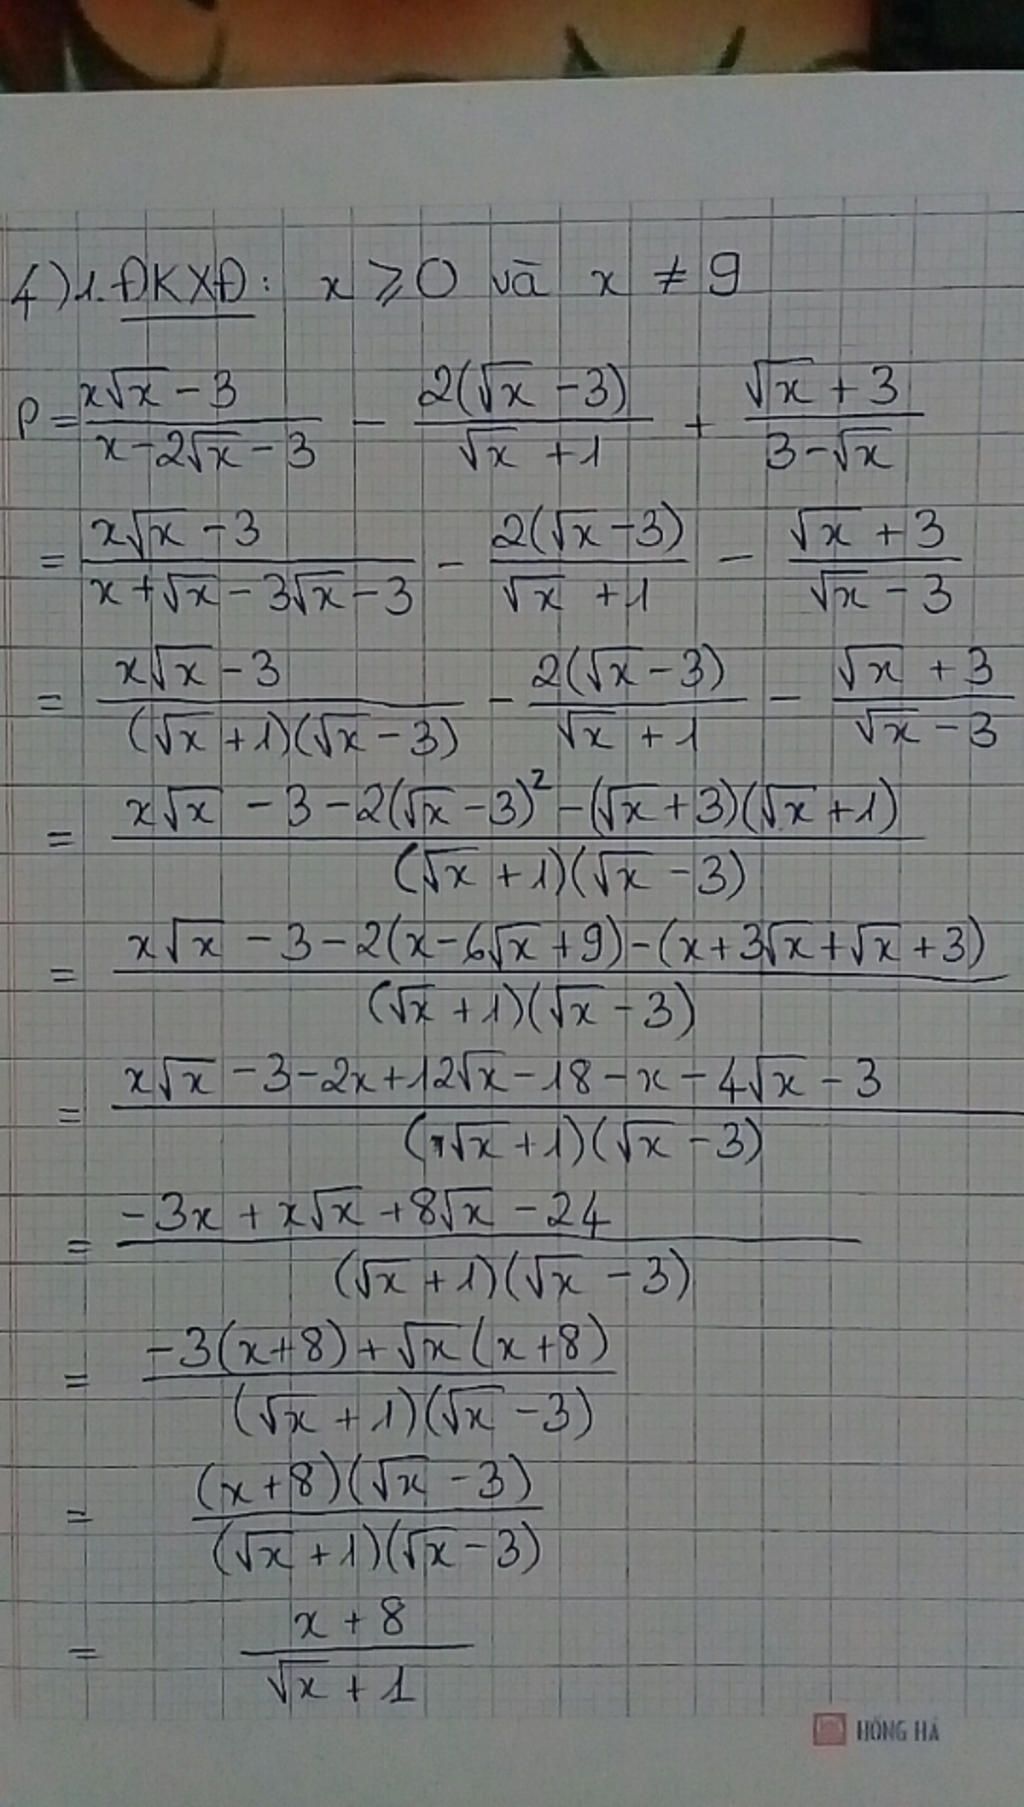 4) 1. ĐKXĐ: x ⩾ 0 và x ≠ 9
P = (x√x - 3)/(x - 2√x - 3) - (2(√x - 3))/(√x + 1) + (√x + 3)/(3 - √x)
= (x√x - 3)/(x + √x - 3√x - 3) - (2(√x - 3))/(√x + 1) - (√x + 3)/(√x - 3)
= (x√x - 3)/((√x + 1)(√x - 3)) - (2(√x - 3))/(√x + 1) - (√x + 3)/(√x - 3)
= (x√x - 3 - 2(√x - 3)² - (√x + 3)(√x + 1))/((√x + 1)(√x - 3))
= (x√x - 3 - 2(x - 6√x + 9) - (x + 3√x + √x + 3))/((√x + 1)(√x - 3))
= (x√x - 3 - 2x + 12√x - 18 - x - 4√x - 3)/((√x + 1)(√x - 3))
= (-3x + x√x + 8√x - 24)/((√x + 1)(√x - 3))
= (-3(x + 8) + √x(x + 8))/((√x + 1)(√x - 3))
= ((x + 8)(√x - 3))/((√x + 1)(√x - 3))
= (x + 8)/(√x + 1)
HỒNG HÀ